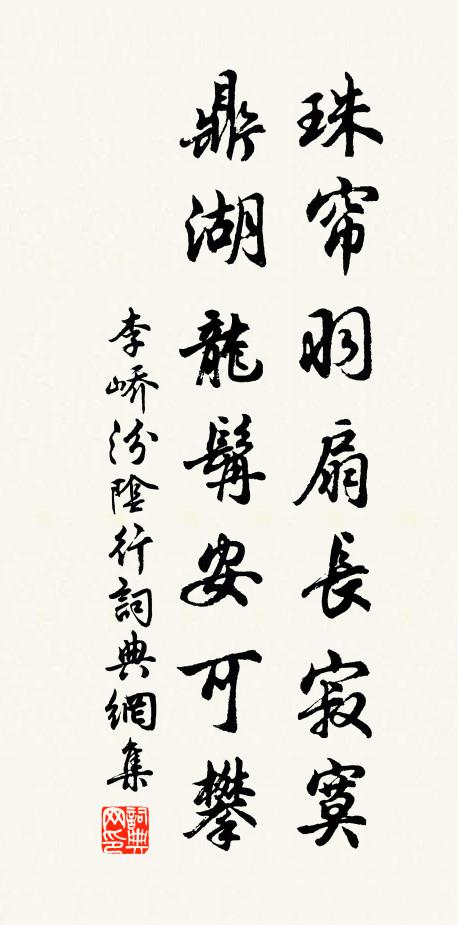 珠帘羽扇長寂寞
鼎湖龍髯安可攀
李嶠汾陰行詞典網集
詞典网印